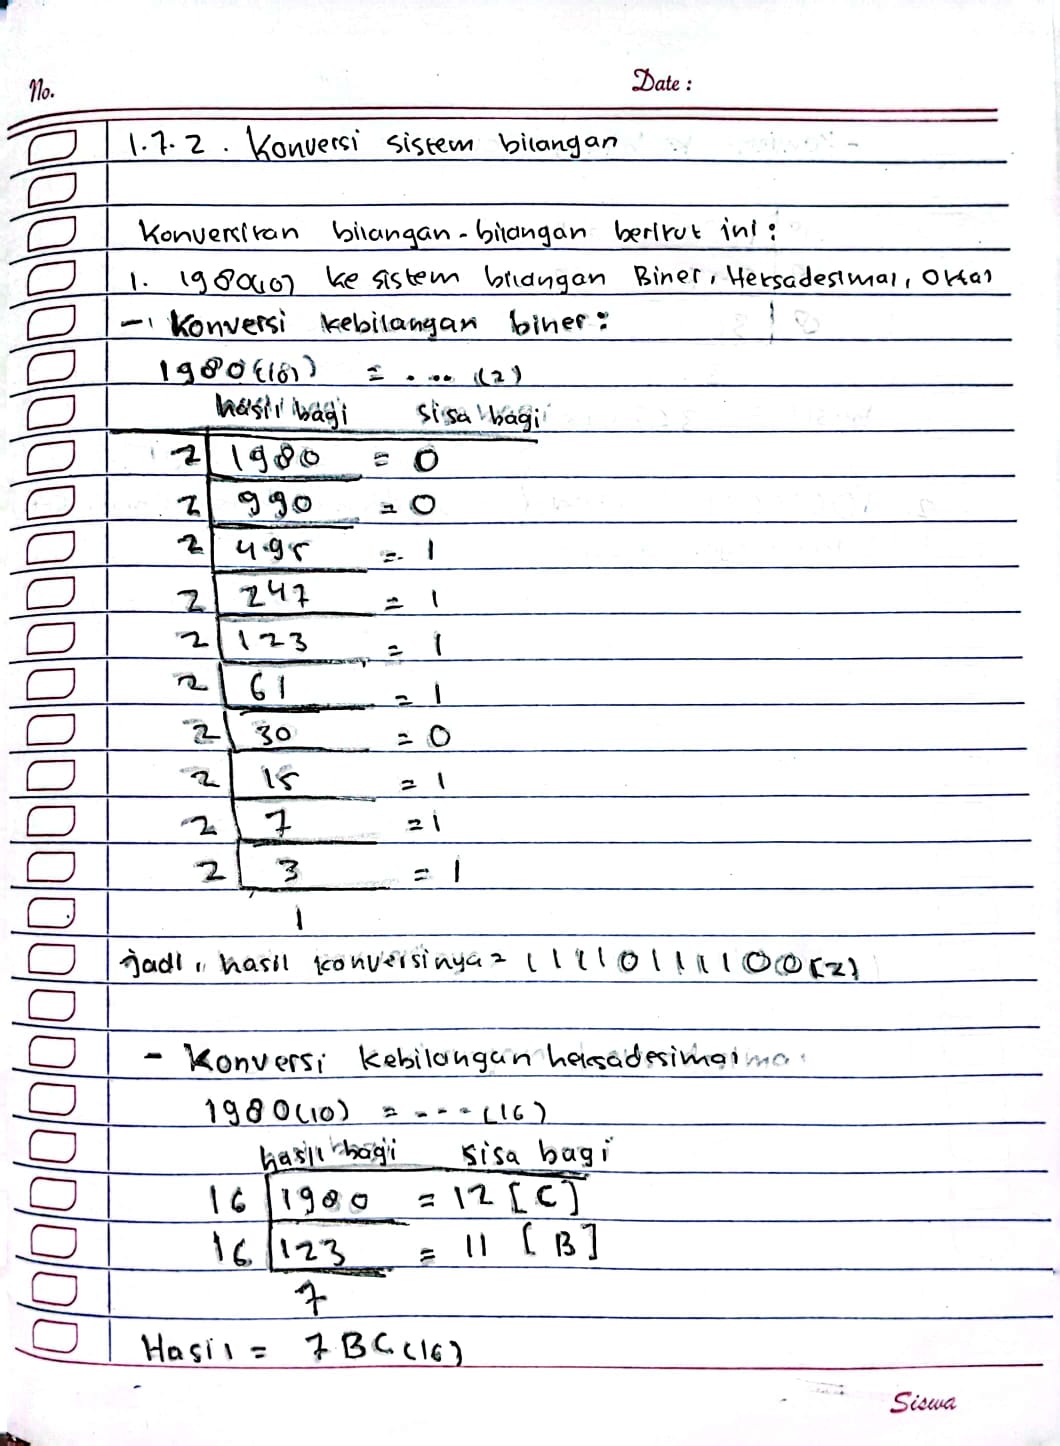 No.
Date :
1.7.2. Konversi sistem bilangan
Konversikan bilangan-bilangan berikut ini :
1. 1980(10) ke sistem bilangan Biner, Heksadesimal, Oktal
- Konversi kebilangan biner :
1980(10) = .... (2)
hasil bagi sisa bagi
2 1980 = 0
2 990 = 0
2 495 = 1
2 247 = 1
2 123 = 1
2 61 = 1
2 30 = 0
2 15 = 1
2 7 = 1
2 3 = 1
1
jadi, hasil konversinya = 11110111100(2)
- Konversi kebilangan heksadesimal
1980(10) = ---- (16)
hasil bagi sisa bagi
16 1980 = 12 [C]
16 123 = 11 [B]
7
Hasil = 7BC(16)
Siswa